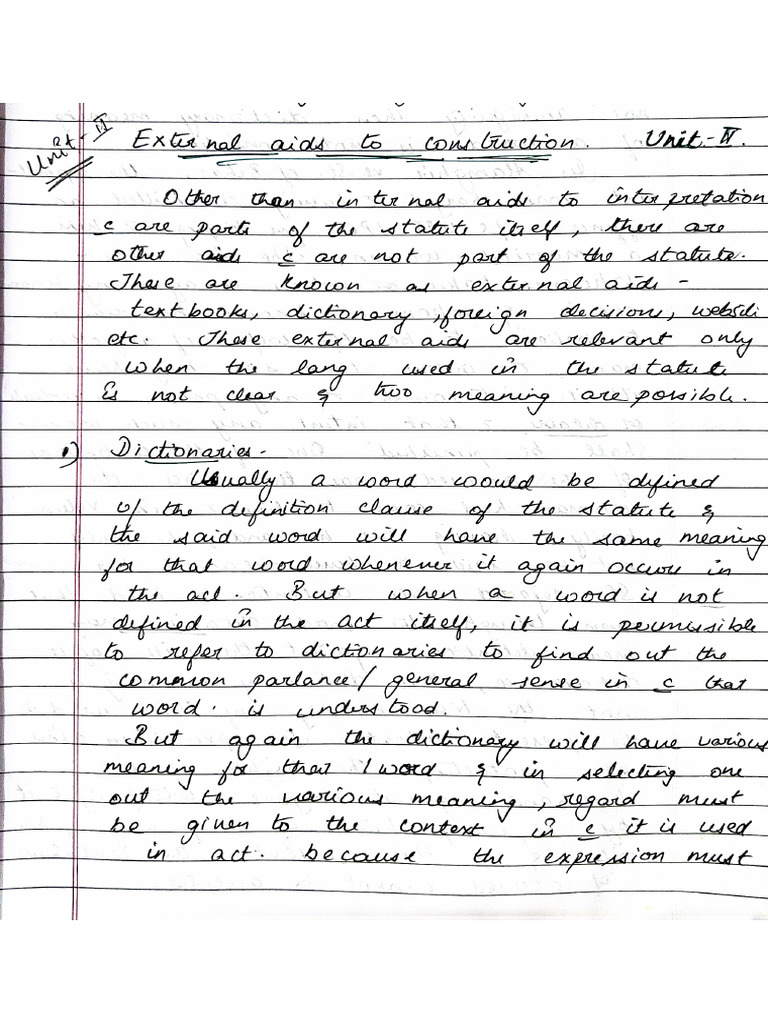 Unit-II
External aids to construction. Unit-II.
Other than internal aids to interpretation
c are parts of the statute itself, there are
other aids c are not part of the statute.
These are known as external aids -
textbooks, dictionary, foreign decisions, websi
etc. These external aids are relevant only
when the lang used in the statute
is not clear & two meaning are possible.
1) Dictionaries -
Usually a word would be defined
of the definition clause of the statute &
the said word will have the same meaning
for that word whenever it again occurs in
the act. But when a word is not
defined in the act itself, it is permissible
to refer to dictionaries to find out the
common parlance/general sense in c that
word. is understood.
But again the dictionary will have various
meaning for that 1 word & in selecting one
out the various meaning, regard must
be given to the context in c it is used
in act. because the expression must